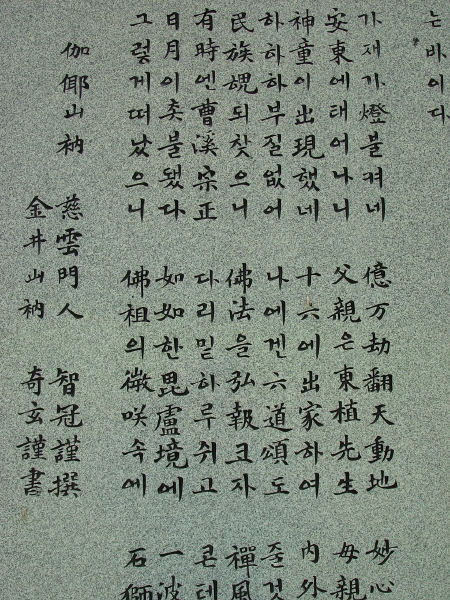 는바이다
가재가燈불켜네 億万劫翻天動地 妙心
安東에태어나니 父親은東植先生 母親
神童이出現했네 十六에出家하여 内外
하하하부질없어 나에겐六道頌도 줄것
民族魂되찾으니 佛法을弘報코자 禪風
有時엔曹溪宗正 다리밑하루쉬고 콘테
日月이촛불됐다 如如한毘盧境에 一波
그렇게떠났으니 佛祖의微咲속에 石獅
伽倻山衲 慈雲門人 智冠謹撰
金井山衲 奇玄謹書